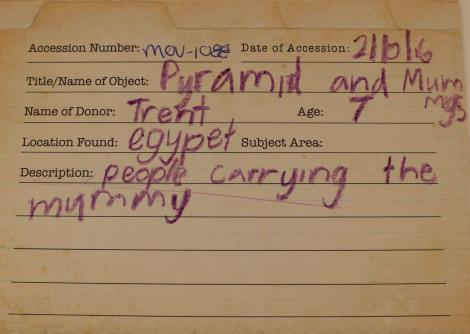 Accession Number: mov-1088 Date of Accession: 21/6/16
Title/Name of Object: Pyramid and Mum
mys
Name of Donor: Trent Age: 7
Location Found: egypet Subject Area:
Description: people carrying the
mummy